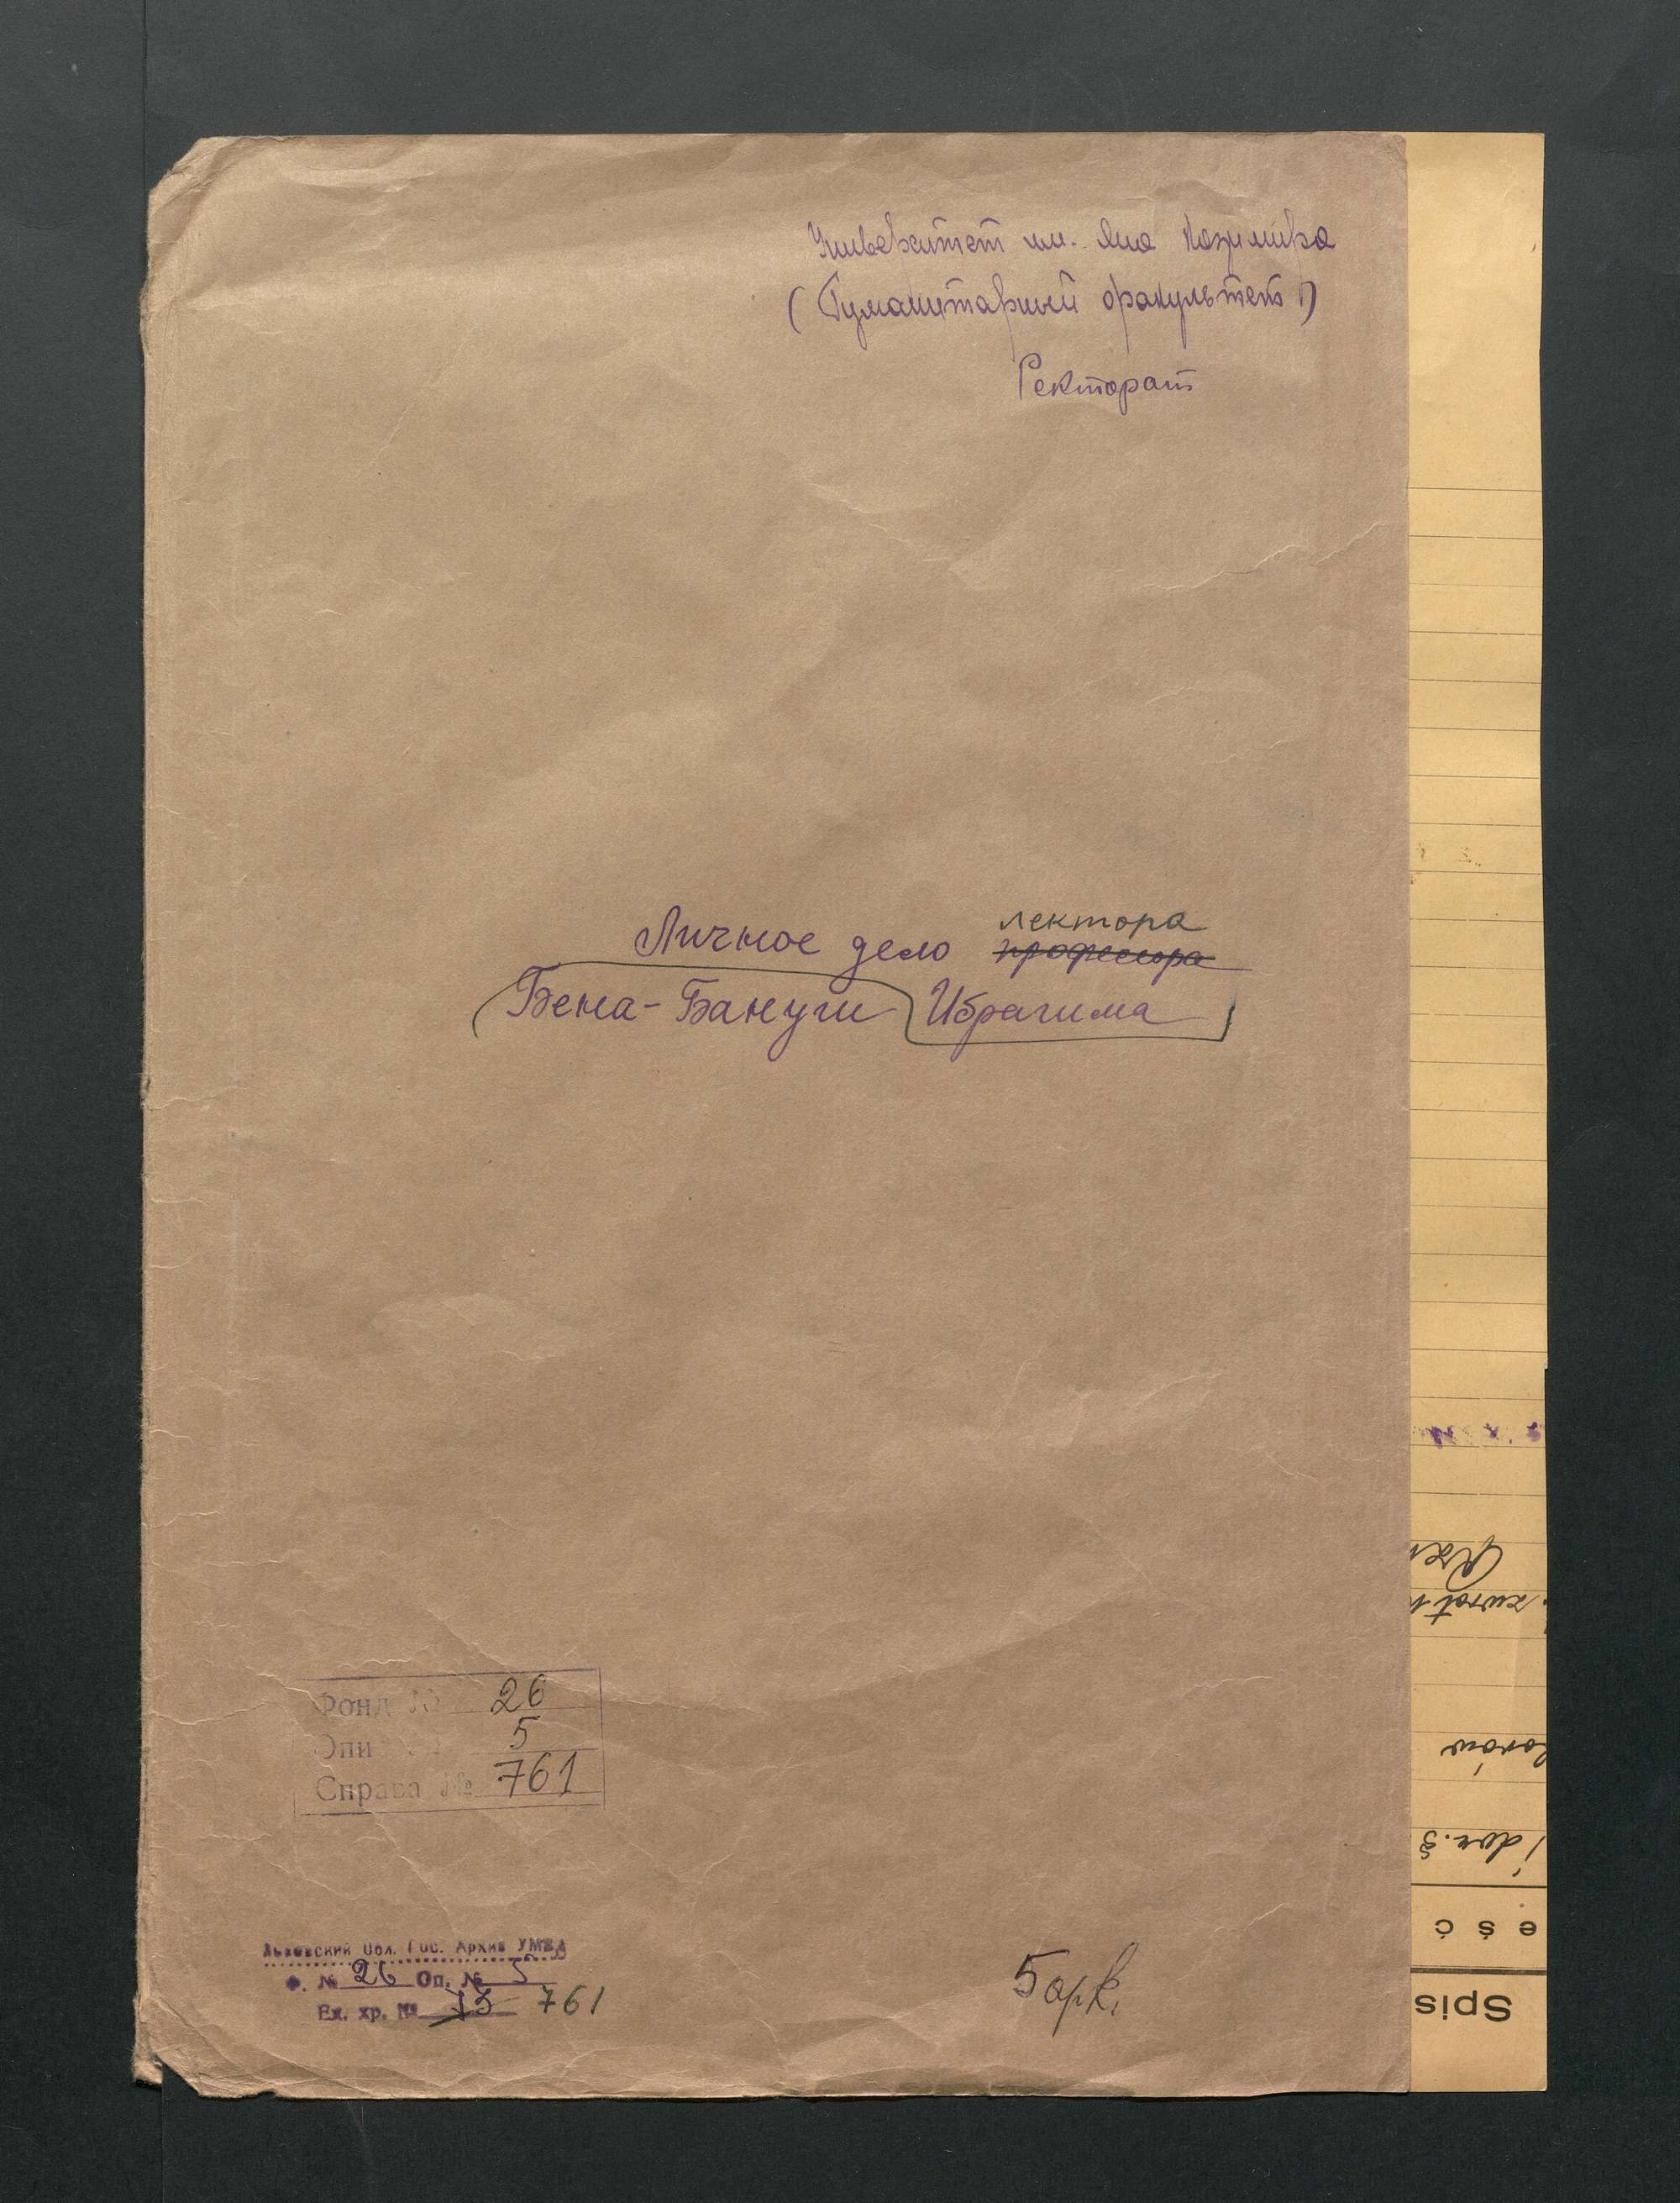 Университет им. Яна Казимира
(Гуманитарный факультет)
Ректорат
лектора
Личное дело профессора
Бена-Бануги Ибрагима
Фонд № 26
Опис № 5
Справа № 761
Львовский Обл. Гос. Архив УМВД
Ф. № 26 Оп. № 5
Ед. хр. № 13 761
5 арк.
zwrot
1 dow. 3
e ś ć
Spis